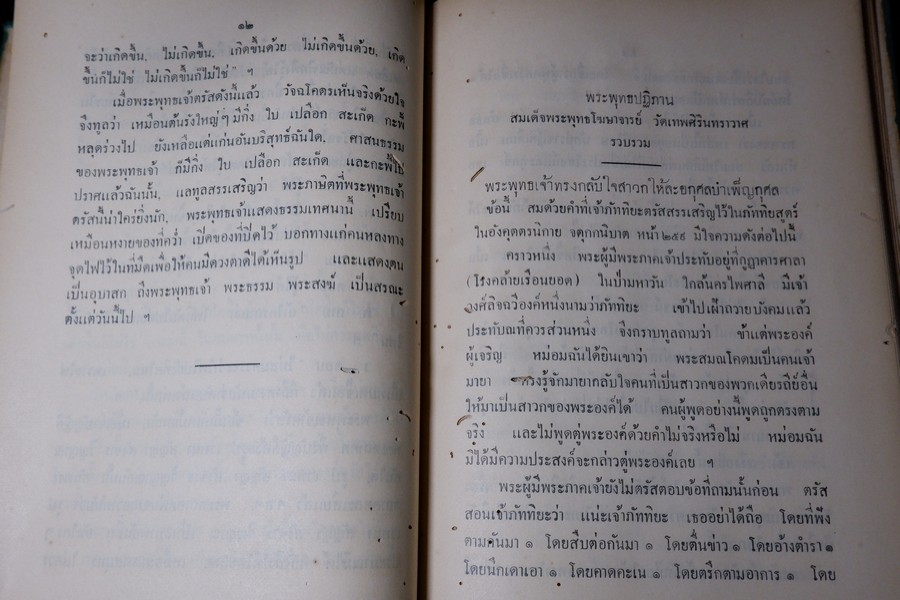 ๑๒
จะว่าเกิดขึ้น, ไม่เกิดขึ้น, เกิดขึ้นด้วย ไม่เกิดขึ้นด้วย, เกิด
ขึ้นก็ไม่ใช่ ไม่เกิดขึ้นก็ไม่ใช่" ฯ
เมื่อพระพุทธเจ้าตรัสดังนี้แล้ว วัจฉโคตรเห็นจริงด้วยใจ
จึงทูลว่า เหมือนต้นรังใหญ่ๆ มีกิ่ง ใบ เปลือก สะเก็ด กะพี้
หลุดร่วงไป ยังเหลือแต่แก่นอันบริสุทธ์ฉันใด, ศาสนธรรม
ของพระพุทธเจ้า ก็มีกิ่ง ใบ เปลือก สะเก็ด และกะพี้ไป
ปราศแล้วฉันนั้น, แลทูลสรรเสริญว่า พระภาษิตที่พระพุทธเจ้า
ตรัสนี้น่าใคร่ยิ่งนัก, พระพุทธเจ้าแสดงธรรมเทศนานี้ เปรียบ
เหมือนหงายของที่คว่ำ เปิดของที่ปิดไว้ บอกทางแก่คนหลงทาง
จุดไฟไว้ในที่มืดเพื่อให้คนมีดวงตาดีได้เห็นรูป และแสดงตน
เป็นอุบาสก ถึงพระพุทธเจ้า พระธรรม พระสงฆ์ เป็นสรณะ
ตั้งแต่วันนี้ไป ฯ
พระพุทธปฏิภาน
สมเด็จพระพุทธโฆษาจารย์ วัดเทพศิรินทราวาศ
รวบรวม
พระพุทธเจ้าทรงกลับใจสาวกให้ละอกุศลบำเพ็ญกุศล
ข้อนี้ สมด้วยคำที่เจ้าภัททิยะตรัสสรรเสริญไว้ในภัททิยสูตร์
ในอังคุตตรนิกาย จตุกกนิบาต หน้า ๒๕๙ มีใจความดังต่อไปนี้
คราวหนึ่ง พระผู้มีพระภาคเจ้าประทับอยู่ที่กูฏาคารศาลา
(โรงคล้ายเรือนยอด) ในป่ามหาวัน ใกล้นครไพศาลี มีเจ้า
องค์ลิจฉวีองค์หนึ่งนามว่าภัททิยะ เข้าไปเฝ้าถวายบังคมแล้ว
ประทับณที่ควรส่วนหนึ่ง จึงกราบทูลถามว่า ข้าแต่พระองค์
ผู้เจริญ หม่อมฉันได้ยินเขาว่า พระสมณโคดมเป็นคนเจ้า
มายา ทรงรู้จักมายากลับใจคนที่เป็นสาวกของพวกเดียรถีย์อื่น
ให้มาเป็นสาวกของพระองค์ได้ คนผู้พูดอย่างนี้พูดถูกตรงตาม
จริง และไม่พูดตู่พระองค์ด้วยคำไม่จริงหรือไม่ หม่อมฉัน
มิได้มีความประสงค์จะกล่าวตู่พระองค์เลย ฯ
พระผู้มีพระภาคเจ้ายังไม่ตรัสตอบข้อที่ถามนั้นก่อน ตรัส
สอนเจ้าภัททิยะว่า แน่ะเจ้าภัททิยะ เธออย่าได้ถือ โดยที่ฟัง
ตามกันมา ๑ โดยสืบต่อกันมา ๑ โดยตื่นข่าว ๑ โดยอ้างตำรา ๑
โดยนึกเดาเอา ๑ โดยคาดคะเน ๑ โดยตรึกตามอาการ ๑ โดย